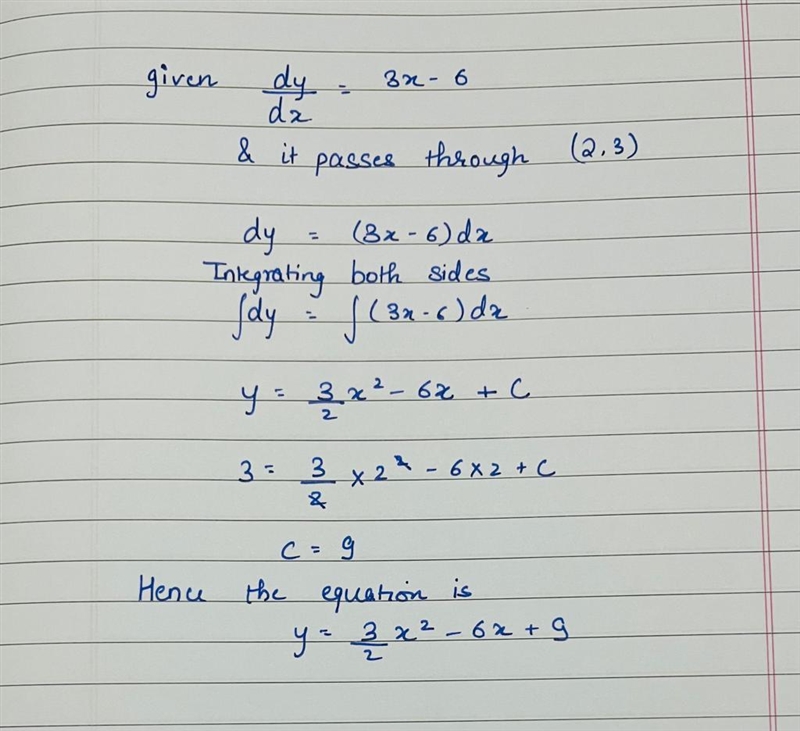 given dy/dx = 3x - 6
& it passes through (2,3)
dy = (3x - 6) dx
Integrating both sides
∫dy = ∫(3x - 6) dx
y = 3/2 x² - 6x + C
3 = 3/2 × 2² - 6 × 2 + C
C = 9
Hence the equation is
y = 3/2 x² - 6x + 9